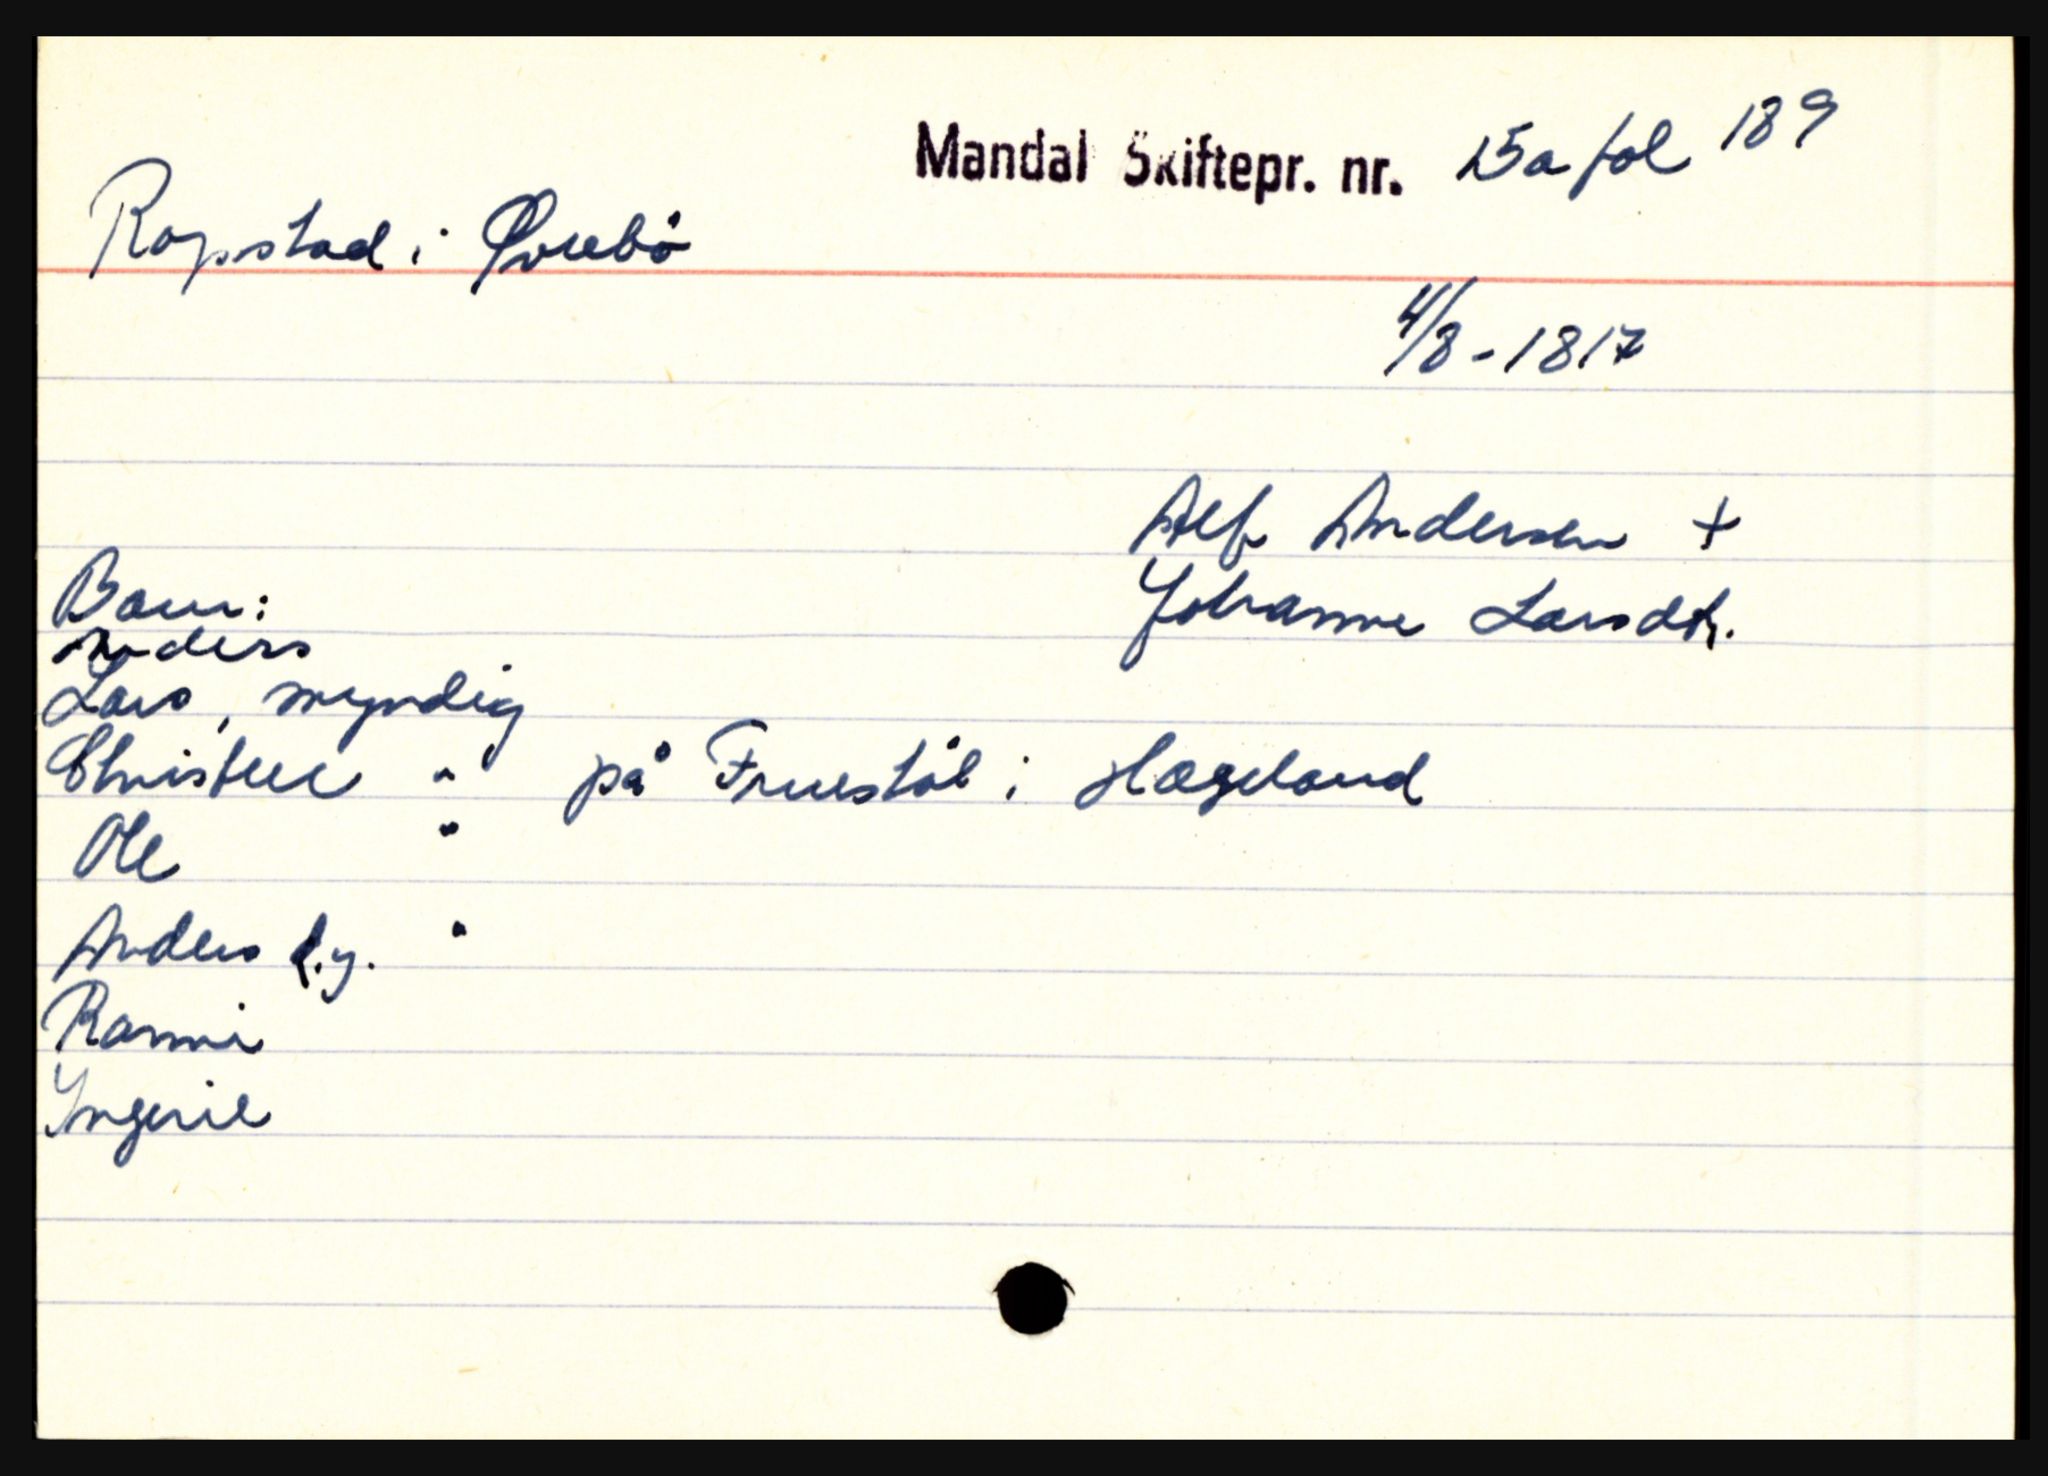 Mandal Skiftepr. nr. 15a fol 189
Ropstad i Øvrebö
4/8-1817
Alf Andersen +
Johanne Larsdtr.
Barn:
Anders
Lars, myndig
Christen " på Fruestøl i Hægeland
Ole "
Anders d.y. "
Ranni
Yngerie